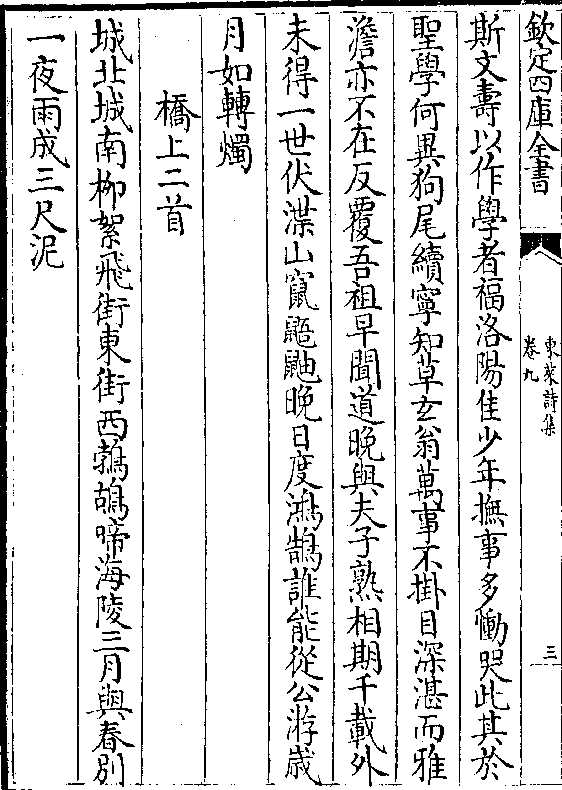 欽定四庫全書
東萊詩集
卷九
三
斯文壽以作學者福洛陽佳少年撫事多慟哭此其於
聖學何異狗尾續寧知草玄翁萬事不掛目深湛而雅
澹亦不在反覆吾祖早聞道晚與夫子熟相期千載外
未得一世伏澘山竄鼯鼬晚日度鴻鵠誰能從公游歳
月如轉燭
橋上二首
城北城南柳絮飛街東街西鵓鴣啼海陵三月與春别
一夜雨成三尺泥